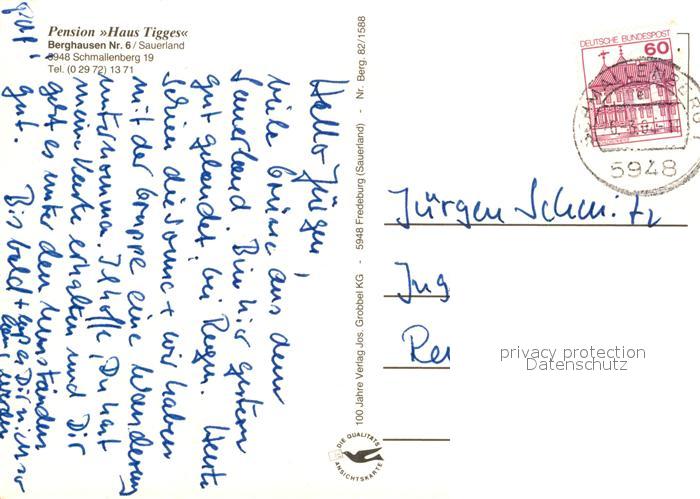 Pension »Haus Tigges«
Berghausen Nr. 6 / Sauerland
5948 Schmallenberg 19
Tel. (0 29 72) 13 71
Hallo Jürgen,
viele Grüße aus dem
Sauerland. Bin hier gestern
gut gelandet, bei Regen. Heute
schien die Sonne + wir haben
mit der Gruppe eine Wanderung
unternommen. Ich hoffe, Du hast
meine Karte erhalten und Dir
geht es unter den Umständen
gut. Bis bald +
gut!
100 Jahre Verlag Jos. Grobbel KG - 5948 Fredeburg (Sauerland) - Nr. Berg. 82/1588
DIE QUALITÄTS
ANSICHTSKARTE
DEUTSCHE BUNDESPOST
60
5948
Jürgen Schmitz
Jug
privacy protection
Datenschutz